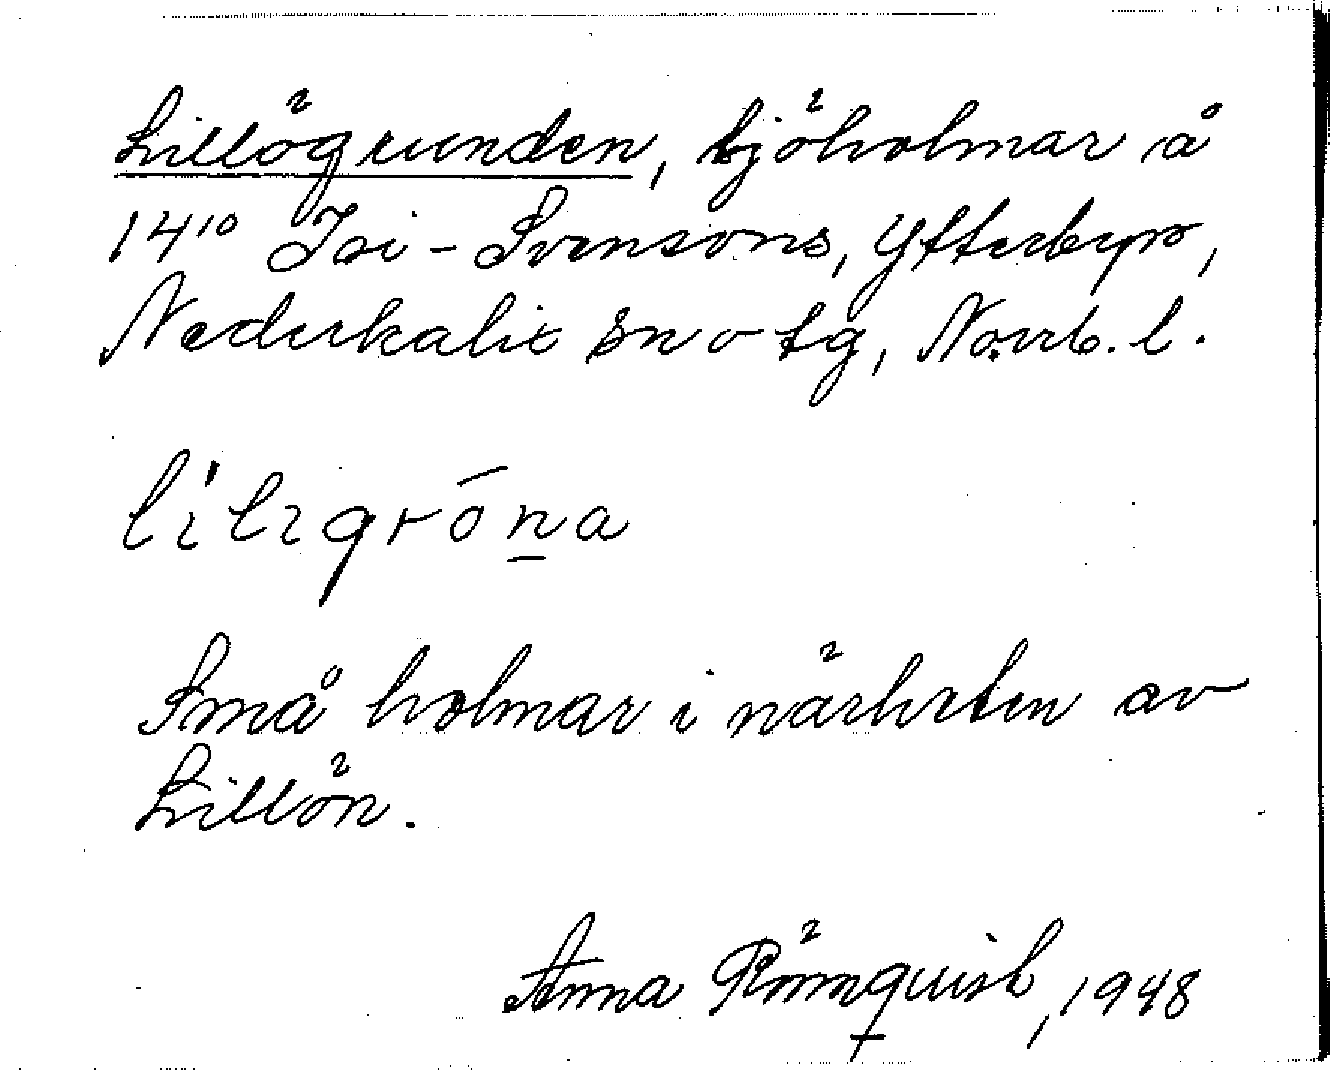 Lillögrunden, sjöholmar å
14¹⁰ Isi-Svensons, Ytterbyn,
Nederkalix sn o tg, Norrb. l.
lilıgróna
Små holmar i närheten av
Lillön.
Anna Rönnquist, 1948